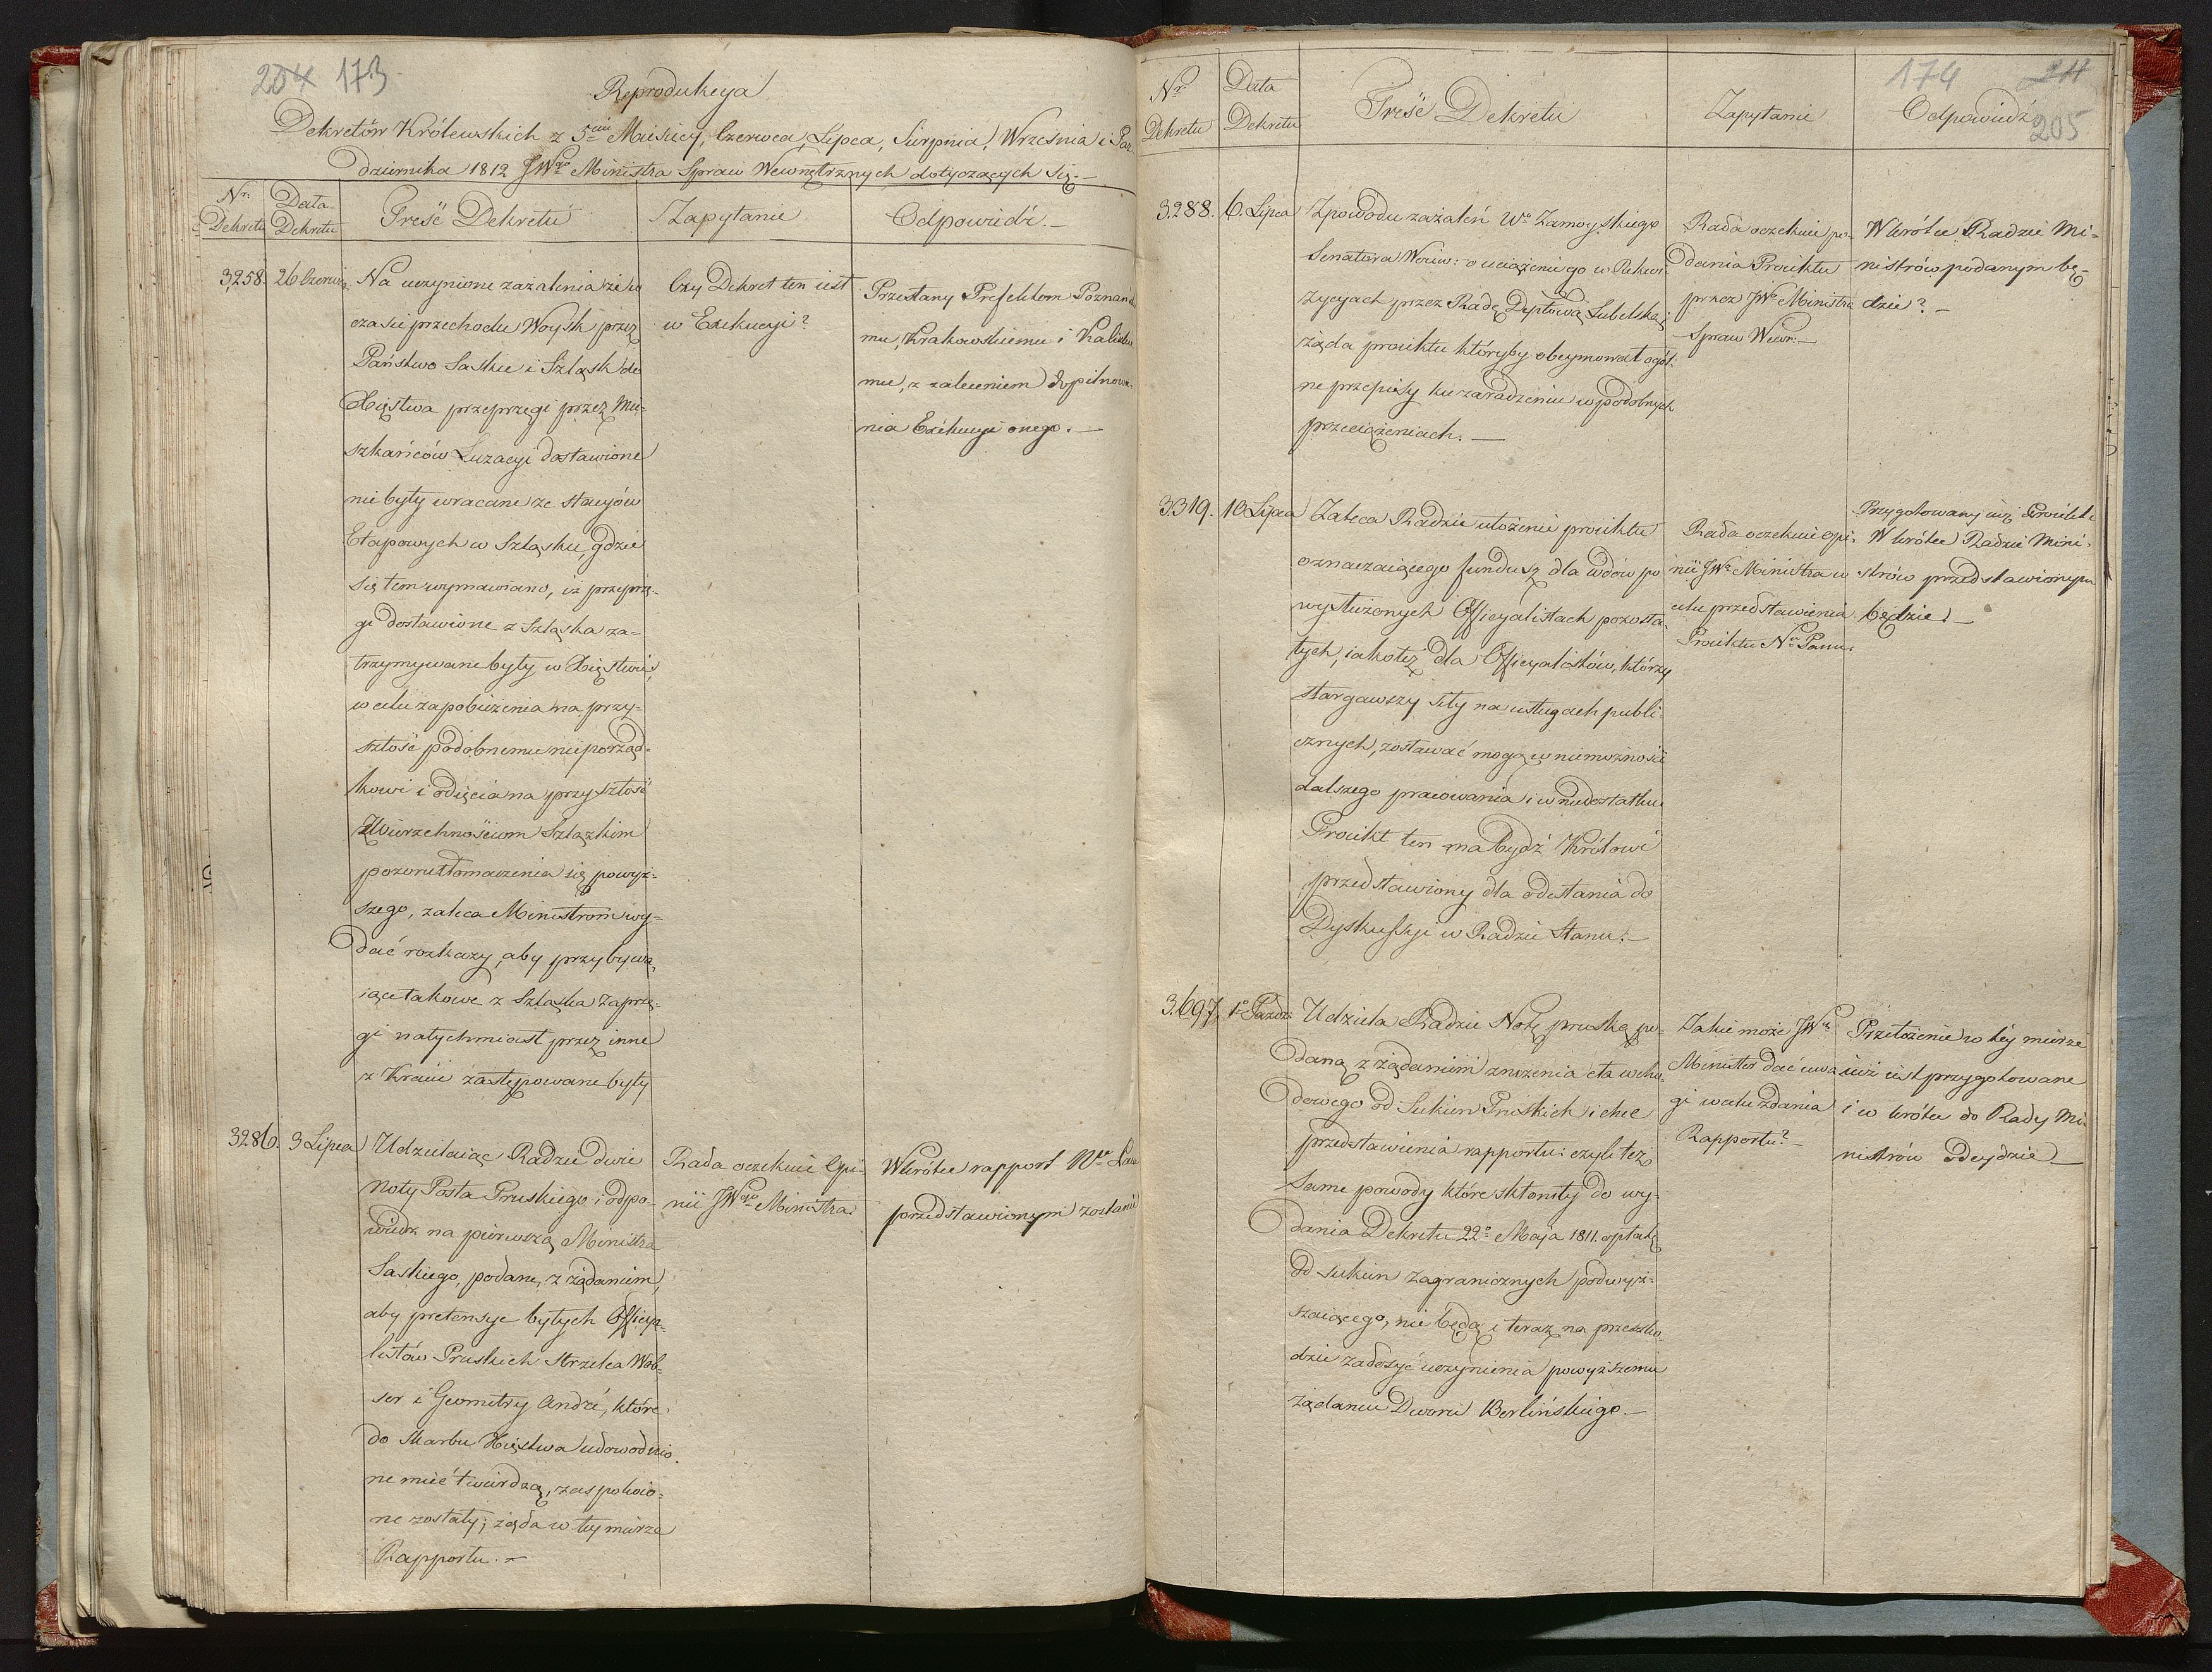 204 173
Reprodukcya
Dekretów Królewskich z 5ciu Miesięcy, Czerwca, Lipca, Sierpnia, Września i Paz
dziernika 1812 JWgo Ministra Spraw Wewnętrznych dotyczących się.-
Nr. Dekretu
Data Dekretu
Treść Dekretu
Zapytanie
Odpowiedź.-
3258. 26 Czerwca.
Na uczynione zażalenia że w
czasie przechodu Woysk przez
Państwo Saskie i Szląsk do
Xięstwa przeprzęgi przez Mie-
szkańców Luzacyi dostawione
nie były wracane ze stacyów
Etapowych w Szląsku, gdzie
się tem wymawiano, iż przeprzę-
gi dostawione z Szląska za-
trzymywane były w Xięstwie,
w celu zapobieżenia na przy-
szłość podobnemu nieporząd-
kowi i odięcia na przyszłość
Zwierzchnościom Szlązkim
pozoru tłomaczenia się powyż-
szego, zaleca Ministrom wy-
dać rozkazy, aby przybywa-
iące takowe z Szląska zaprzę-
gi natychmiast przez inne
z Kraiu zastępowane były
Czy Dekret ten iest
w Exekucyi?
Przesłany Prefektom Poznańs
mu, Krakowskiemu i Kalisk
mu, z zaleceniem dopilnowa-
nia Exekucyi onego.-
3286. 3 Lipca
Udzielaiąc Radzie dwie
Noty Posła Pruskiego i odpo-
wiedz na pierwszą Ministra
Saskiego, podane, z żądaniem,
aby pretensye byłych Officya-
listów Pruskich Strzelca Wob-
ser i Geometry André, które
do Skarbu Xięstwa udowodnio-
ne mieć twierdzą, zaspokoio-
ne zostały; żąda w tey mierze
Rapportu.-
Rada oczekuie Opi-
nii JWgo Ministra
Wkrótce rapport
przedstawionym zostanie
174 211
205
Nr. Dekretu
Data Dekretu
Treść Dekretu
Zapytanie
Odpowiedź
3288. 6. Lipca
Z powodu zażaleń Wo Zamoyskiego
Senatora Woiew: o uciążenie go w Rekwi-
zycyach przez Radę Deptową Lubelską
żąda proiektu któryby obeymował ogól-
ne przepisy ku zaradzeniu w podobnych
przeciążeniach.-
Rada oczekuie po-
dania Proiektu
przez JWo Ministra
Spraw Wewn:-
Wkrótce Radzie Mi-
nistrów podanym bę-
dzie?-
3319. 10 Lipca
Zaleca Radzie ułożenie proiektu
oznaczaiącego fundusz dla wdów po
wysłużonych Officyalistach pozosta-
łych, iako też dla Officyalistów, którzy
stargawszy siły na usługach publi-
cznych, zostawać mogą w niemożności
dalszego pracowania i w niedostatku
Proiekt ten ma bydź Królowi
przedstawiony dla odesłania do
Dyskussyi w Radzie Stanu.-
Rada oczekuie opi-
nii JWo Ministra w
celu przedstawienia
Proiektu No Panu.
Przygotowany iuż Proiekt
Wkrótce Radzie Mini-
strów przedstawionym
będzie.-
3.697. 1o Pazdz:
Udziela Radzie Notę pruską po-
daną z żądaniem zniżenia cła wcho-
dowego od Sukien Pruskich i chce
przedstawienia rapportu: czyli też
same powody które skłoniły do wy-
dania Dekretu 22o Maja 1811. opłatę
od sukien zagranicznych podwyż-
szaiącego, nie będą i teraz na przeszko-
dzie zadosyć uczynienia powyższemu
żądaniu Dworu Berlińskiego.-
Jakie może JWny
Minister dać uwa
gi w celu zdania
Rapportu?-
Przełożenie w téy mierze
iuż iest przygotowane
i w krótce do Rady Mi-
nistrów odeydzie-